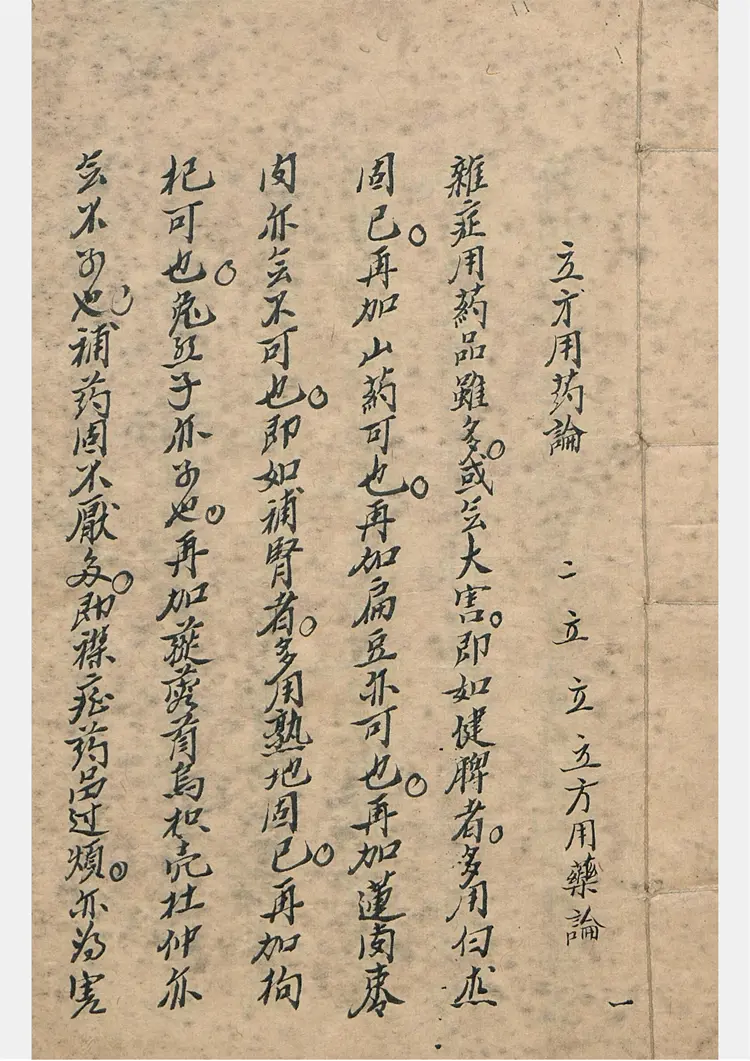 立方用药論 二立立立方用藥論
一
雜症用葯品雖多。或无大害。即如健脾者。多用白朮
固已。再加山葯可也。再加扁豆亦可也。再加蓮肉麥
肉亦无不可也。即如補腎者。多用熟地固已。再加枸
杞可也。菟丝子亦可也。再加蓯蓉首烏枳壳杜仲亦
无不可也。補药固不厭多。即襍症药品过煩。亦为害